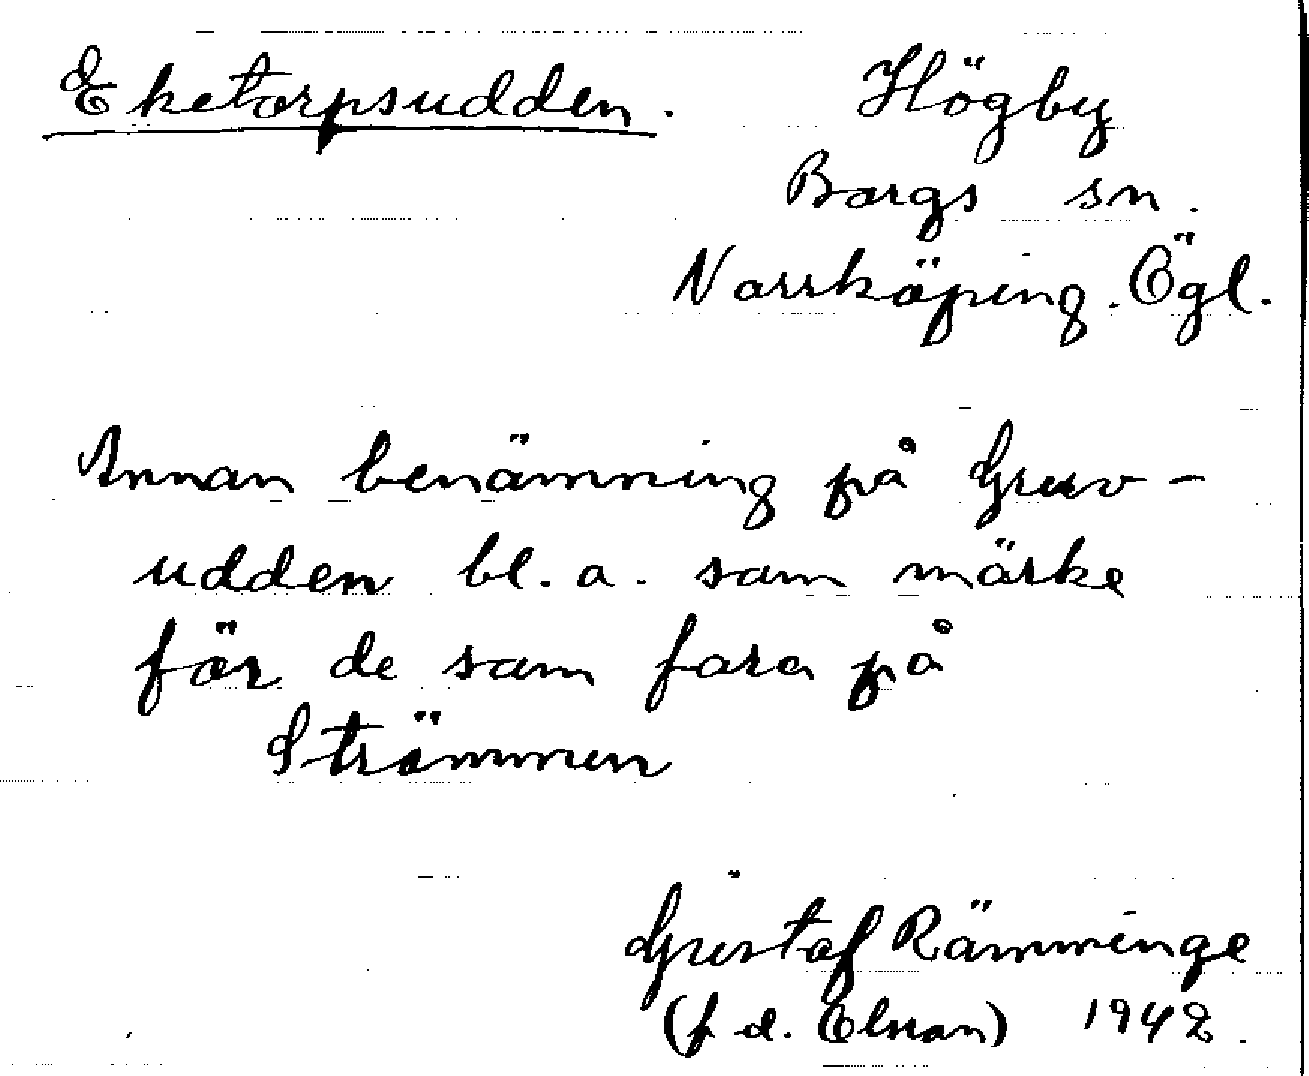 Eketorpsudden. Högby
Borgs sn.
Norrköping. Ögl.
Annan benämning på Gruv-
udden bl. a. som märke
för de som fara på
Strömmen
Gustaf Rämminge
(f d. Elman) 1942.